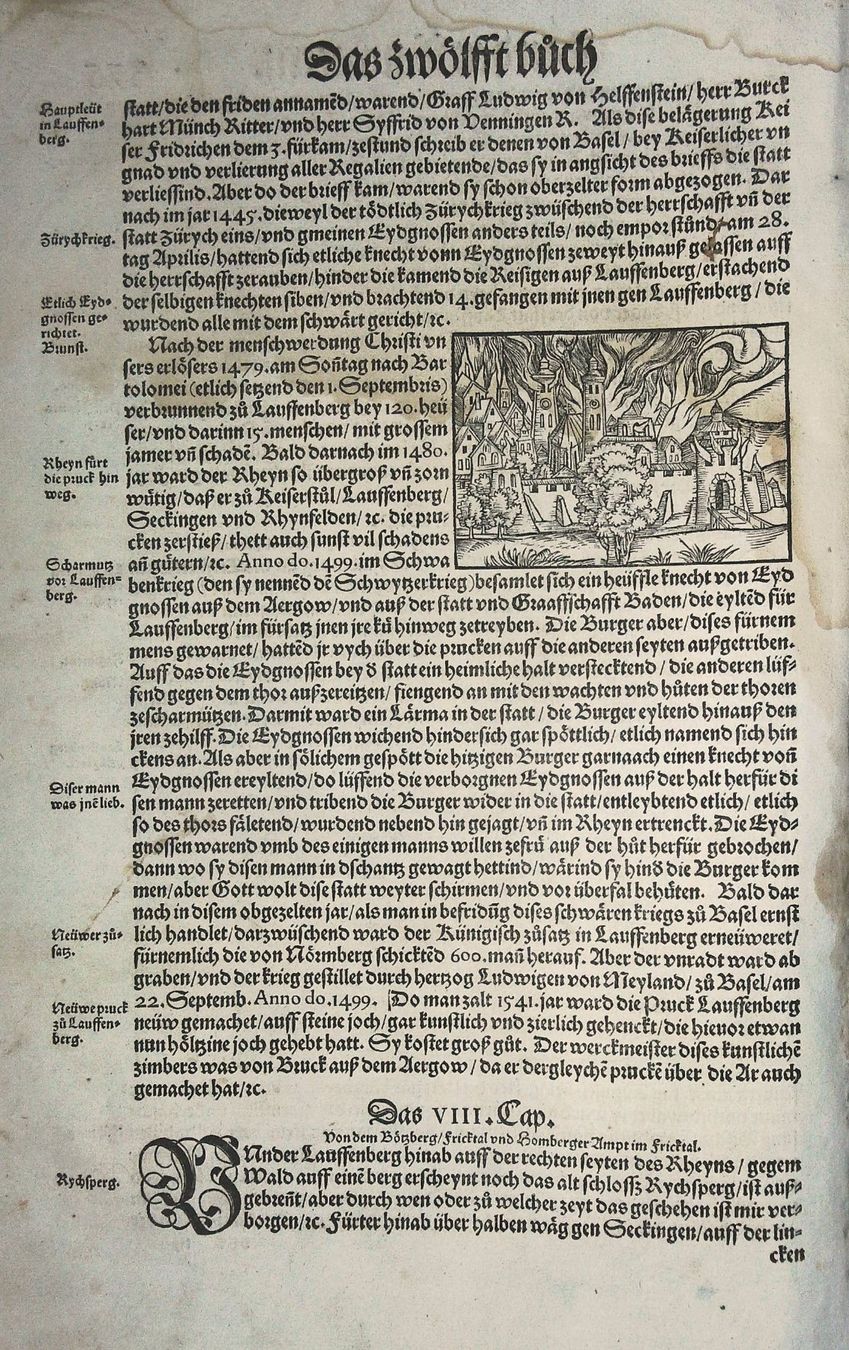 Das zwölfft bůch
Hauptleüt
in Lauffen-
berg.
statt/die den friden annamẽd/warend/Graff Ludwig von Helffenstein/herr Burck
hart Münch Ritter/vnd herr Syffrid von Venningen R. Als dise belägerung Kei
ser Fridrichen dem 3. fürkam/zestund schreib er denen von Basel/bey Keiserlicher vn
gnad vnd verlierung aller Regalien gebietende/das sy in angsicht des brieffs die statt
verliessind. Aber do der brieff kam/warend sy schon oberzelter form abgezogen. Dar
nach im jar 1445. dieweyl der tödtlich Zürychkrieg zwüschend der herrschafft vñ der
Zürychkrieg.
statt Zürych eins/vnd gmeinen Eydgnossen anders teils/noch empor stůnd/am 28.
tag Aprilis/hattend sich etliche knecht vonn Eydgnossen zeweyt hinauß gelassen auff
die herrschafft zerauben/hinder die kamend die Reisigen auß Lauffenberg/erstachend
Etlich Eyd-
gnossen ge-
richtet.
der selbigen knechten siben/vnd brachtend 14. gefangen mit jnen gen Lauffenberg/die
wurdend alle mit dem schwärt gericht/ꝛc.
Brunst.
Nach der menschwerdung Christi vn
sers erlösers 1479. am Soñtag nach Bar
tolomei (etlich setzend den 1. Septembris)
verbrunnend zů Lauffenberg bey 120. heü
ser/vnd darinn 15. menschen/mit grossem
jamer vñ schadẽ. Bald darnach im 1480.
Rheyn fürt
die pruck hin
weg.
jar ward der Rheyn so übergroß vñ zorn
wütig/daß er zů Keiserstůl/Lauffenberg/
Seckingen vnd Rhynfelden/ꝛc. die pru-
cken zerstieß/thett auch sunst vil schadens
Scharmutz
vor Lauffen-
berg.
añ gütern/ꝛc. Anno do. 1499. im Schwa
benkrieg (den sy nennẽd dẽ Schwytzerkrieg) besamlet sich ein heüffle knecht von Eyd
gnossen auß dem Aergow/vnd auß der statt vnd Graaffschafft Baden/die eyltẽd für
Lauffenberg/im fürsatz jnen jre kü hinweg zetreyben. Die Burger aber/dises fürnem
mens gewarnet/hattẽd jr vych über die prucken auff die anderen seyten außgetriben.
Auff das die Eydgnossen bey d̕ statt ein heimliche halt verstecktend/die anderen lüf-
fend gegen dem thor außzereitzen/fiengend an mit den wachten vnd hůten der thoren
zescharmützen. Darmit ward ein Lärma in der statt/die Burger eyltend hinauß den
jren zehilff. Die Eydgnossen wichend hindersich gar spöttlich/etlich namend sich hin
ckens an. Als aber in sölichem gespött die hitzigen Burger garnaach einen knecht voñ
Diser mann
was jnẽ lieb.
Eydgnossen ereyltend/do lüffend die verborgnen Eydgnossen auß der halt herfür di
sen mann zeretten/vnd tribend die Burger wider in die statt/entleybtend etlich/etlich
so des thors fäletend/wurdend nebend hin gejagt/vñ im Rheyn ertrenckt. Die Eyd-
gnossen warend vmb des einigen manns willen zefrů auß der hůt herfür gebrochen/
dann wo sy disen mann in dschantz gewagt hettind/wärind sy hind̕ die Burger kom
men/aber Gott wolt dise statt weyter schirmen/vnd vor überfal behüten. Bald dar
nach in disem obgezelten jar/als man in befridũg dises schwären kriegs zů Basel ernst
Neüwer zů-
satz.
lich handlet/darzwüschend ward der Künigisch zůsatz in Lauffenberg erneüweret/
fürnemlich die von Nörmberg schicktẽd 600. mañ herauf. Aber der vnradt ward ab
graben/vnd der krieg gestillet durch hertzog Ludwigen von Meyland/zů Basel/am
22. Septemb. Anno do. 1499. Do man zalt 1541. jar ward die Pruck Lauffenberg
Neüwe pruck
zů Lauffen-
berg.
neüw gemachet/auff steine joch/gar kunstlich vnd zierlich gehenckt/die hieuor etwan
nun höltzine joch gehebt hatt. Sy kostet groß gůt. Der werckmeister dises kunstlichẽ
zimbers was von Bruck auß dem Aergow/da er dergleychẽ pruckẽ über die Ar auch
gemachet hat/ꝛc.
Das VIII. Cap.
Von dem Bötzberg/Fricktal vnd Homberger Ampt im Fricktal.
VNder Lauffenberg hinab auff der rechten seyten des Rheyns/gegem
Rychsperg.
Wald auff einẽ berg erscheynt noch das alt schlossz Rychsperg/ist auß-
gebreñt/aber durch wen oder zů welcher zeyt das geschehen ist mir ver-
borgen/ꝛc. Fürter hinab über halben wäg gen Seckingen/auff der lin-
cken